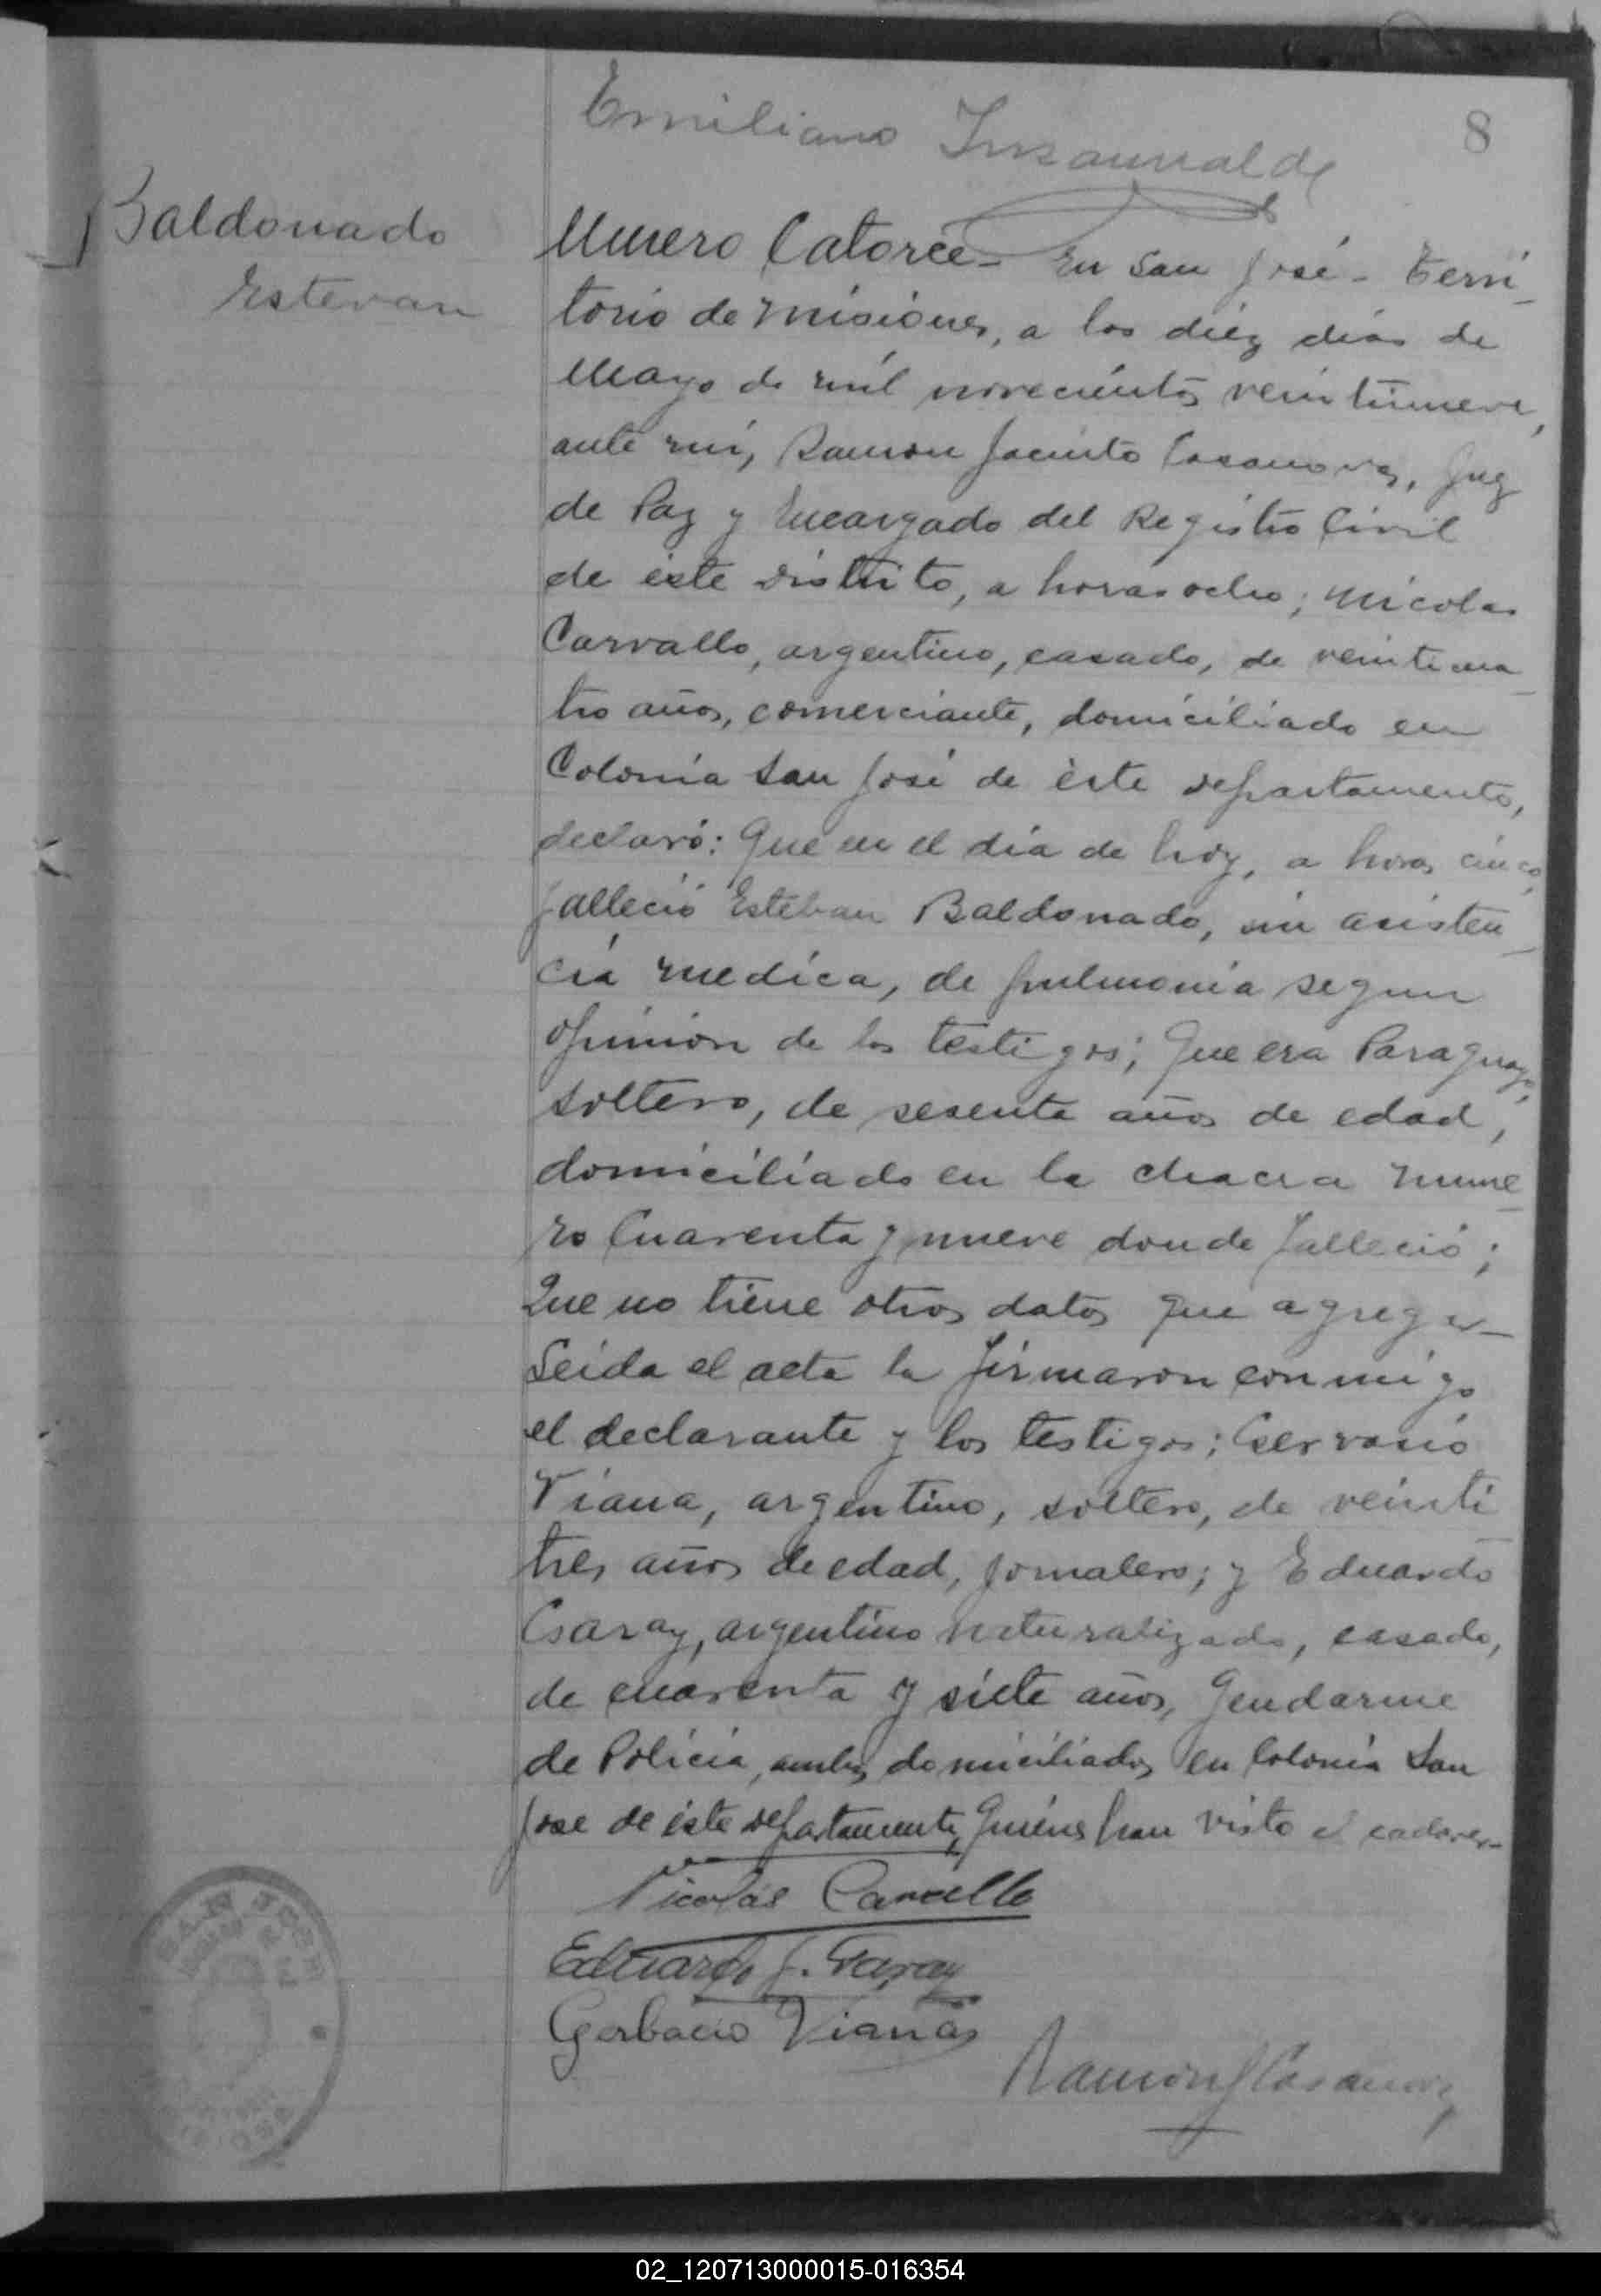 Emiliano
8
Baldonado
Estevan
Numero Catorce - En San José - Terri-
torio de Misiones, a los diez dias de
Mayo de mil novecientos veintinueve,
ante mi, Ramon Jacinto Casanova, Juez
de Paz y Encargado del Registro Civil
de éste distrito, a horas ocho; Nicolas
Carvallo, argentino, casado, de veinticua-
tro años, comerciante, domiciliado en
Colonia San José de éste departamento,
declaró: Que en el día de hoy, a horas cinco,
falleció Esteban Baldonado, sin asisten-
cia medica, de pulmonia segun
opinion de los testigos; Que era Paraguayo,
soltero, de sesenta años de edad,
domiciliado en la chacra nume-
ro Cuarenta y nueve donde falleció;
Que no tiene otros datos que agregar -
Leida el acta la firmaron conmigo
el declarante y los testigos; Gervasio
Viana, argentino, soltero, de veinti
tres años de edad, jornalero; y Eduardo
Garay, argentino naturalizado, casado,
de cuarenta y siete años, Gendarme
de Policia, ambos domiciliados en Colonia San
Jose de éste departamento, Quiénes han visto el cadaver -
Nicolás Carvallo
Eduardo J. Garay
Gerbacio Vianas
Ramon J Casanova
SAN JOSE
02_120713000015-016354